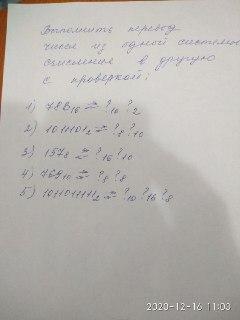 Выполнить перевод
чисел из одной системы
счисления в другую
с проверкой:
1) 78B₁₆ ⇄ ?₁₀ ?₂
2) 1011101₂ ⇄ ?₈ ?₁₀
3) 157₈ ⇄ ?₁₆ ?₁₀
4) ⇄ ?₈ ?₈
5) ⇄ ?₁₀ ?₁₆ ?₈
2020-12-16 11:03